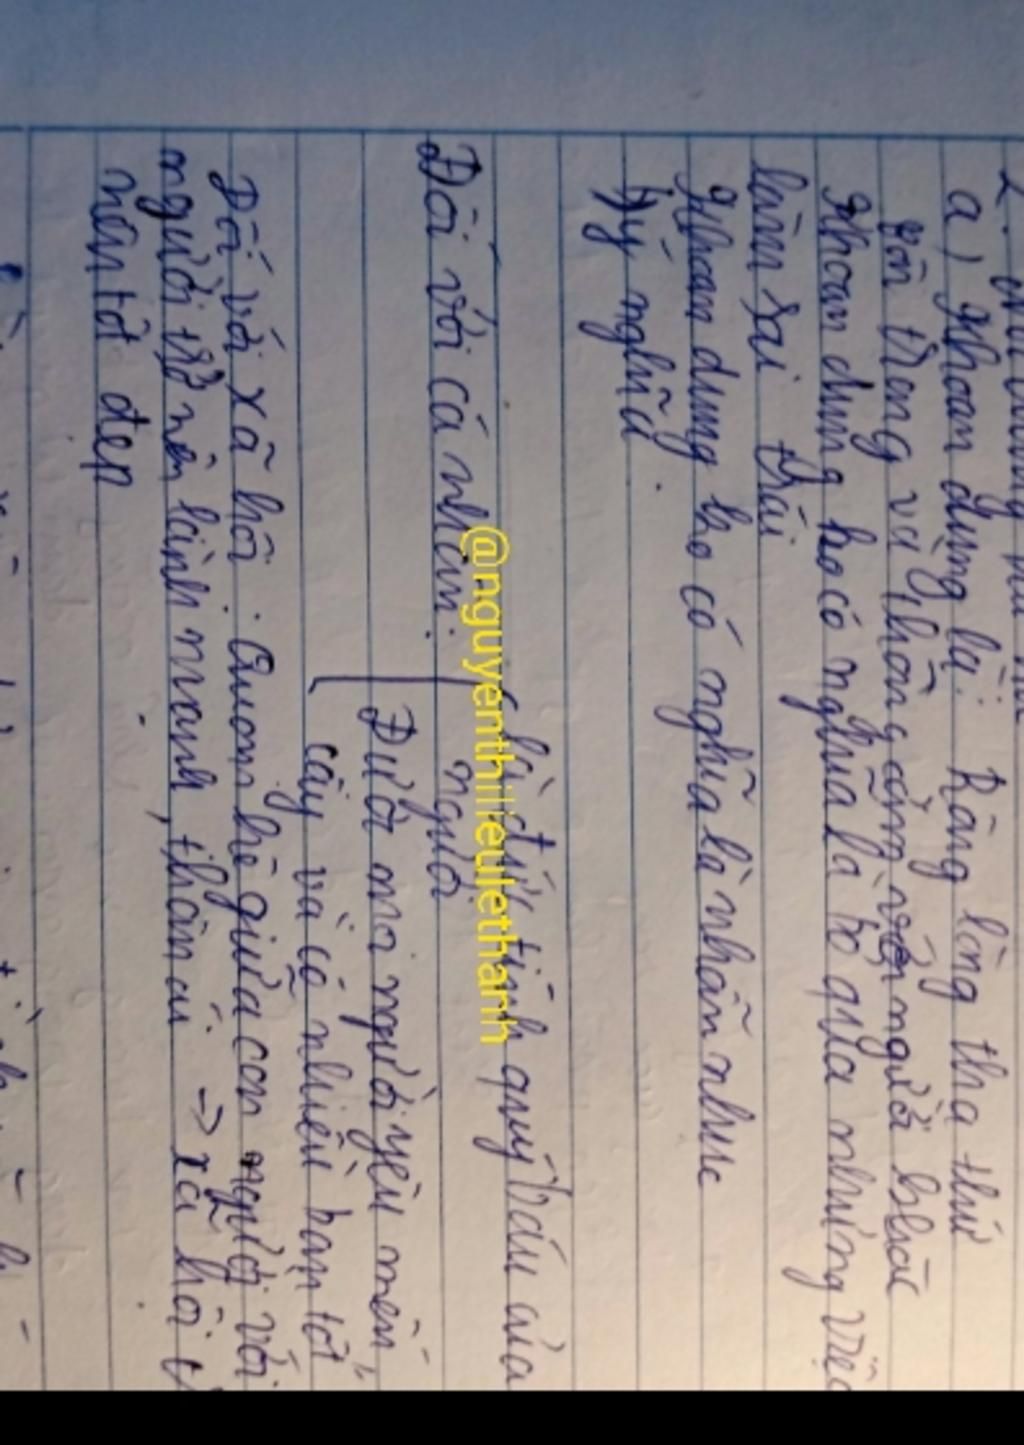 2.
a) Khoan dung là: Rộng lòng tha thứ
tôn trọng và thông cảm với người khác
Khoan dung ko có nghĩa là bỏ qua những việc
làm sai trái
Khoan dung ko có nghĩa là nhẫn nhục
Ý nghĩa.
Đối với cá nhân:
là đức tính quý báu của
người
Được mọi người yêu mến
cậy và có nhiều bạn tốt
Đối với xã hội: Quan hệ giữa con người với
người trở nên lành mạnh, thân ái. -> xã hội
nên tốt đẹp
@nguyenthilieulethanh